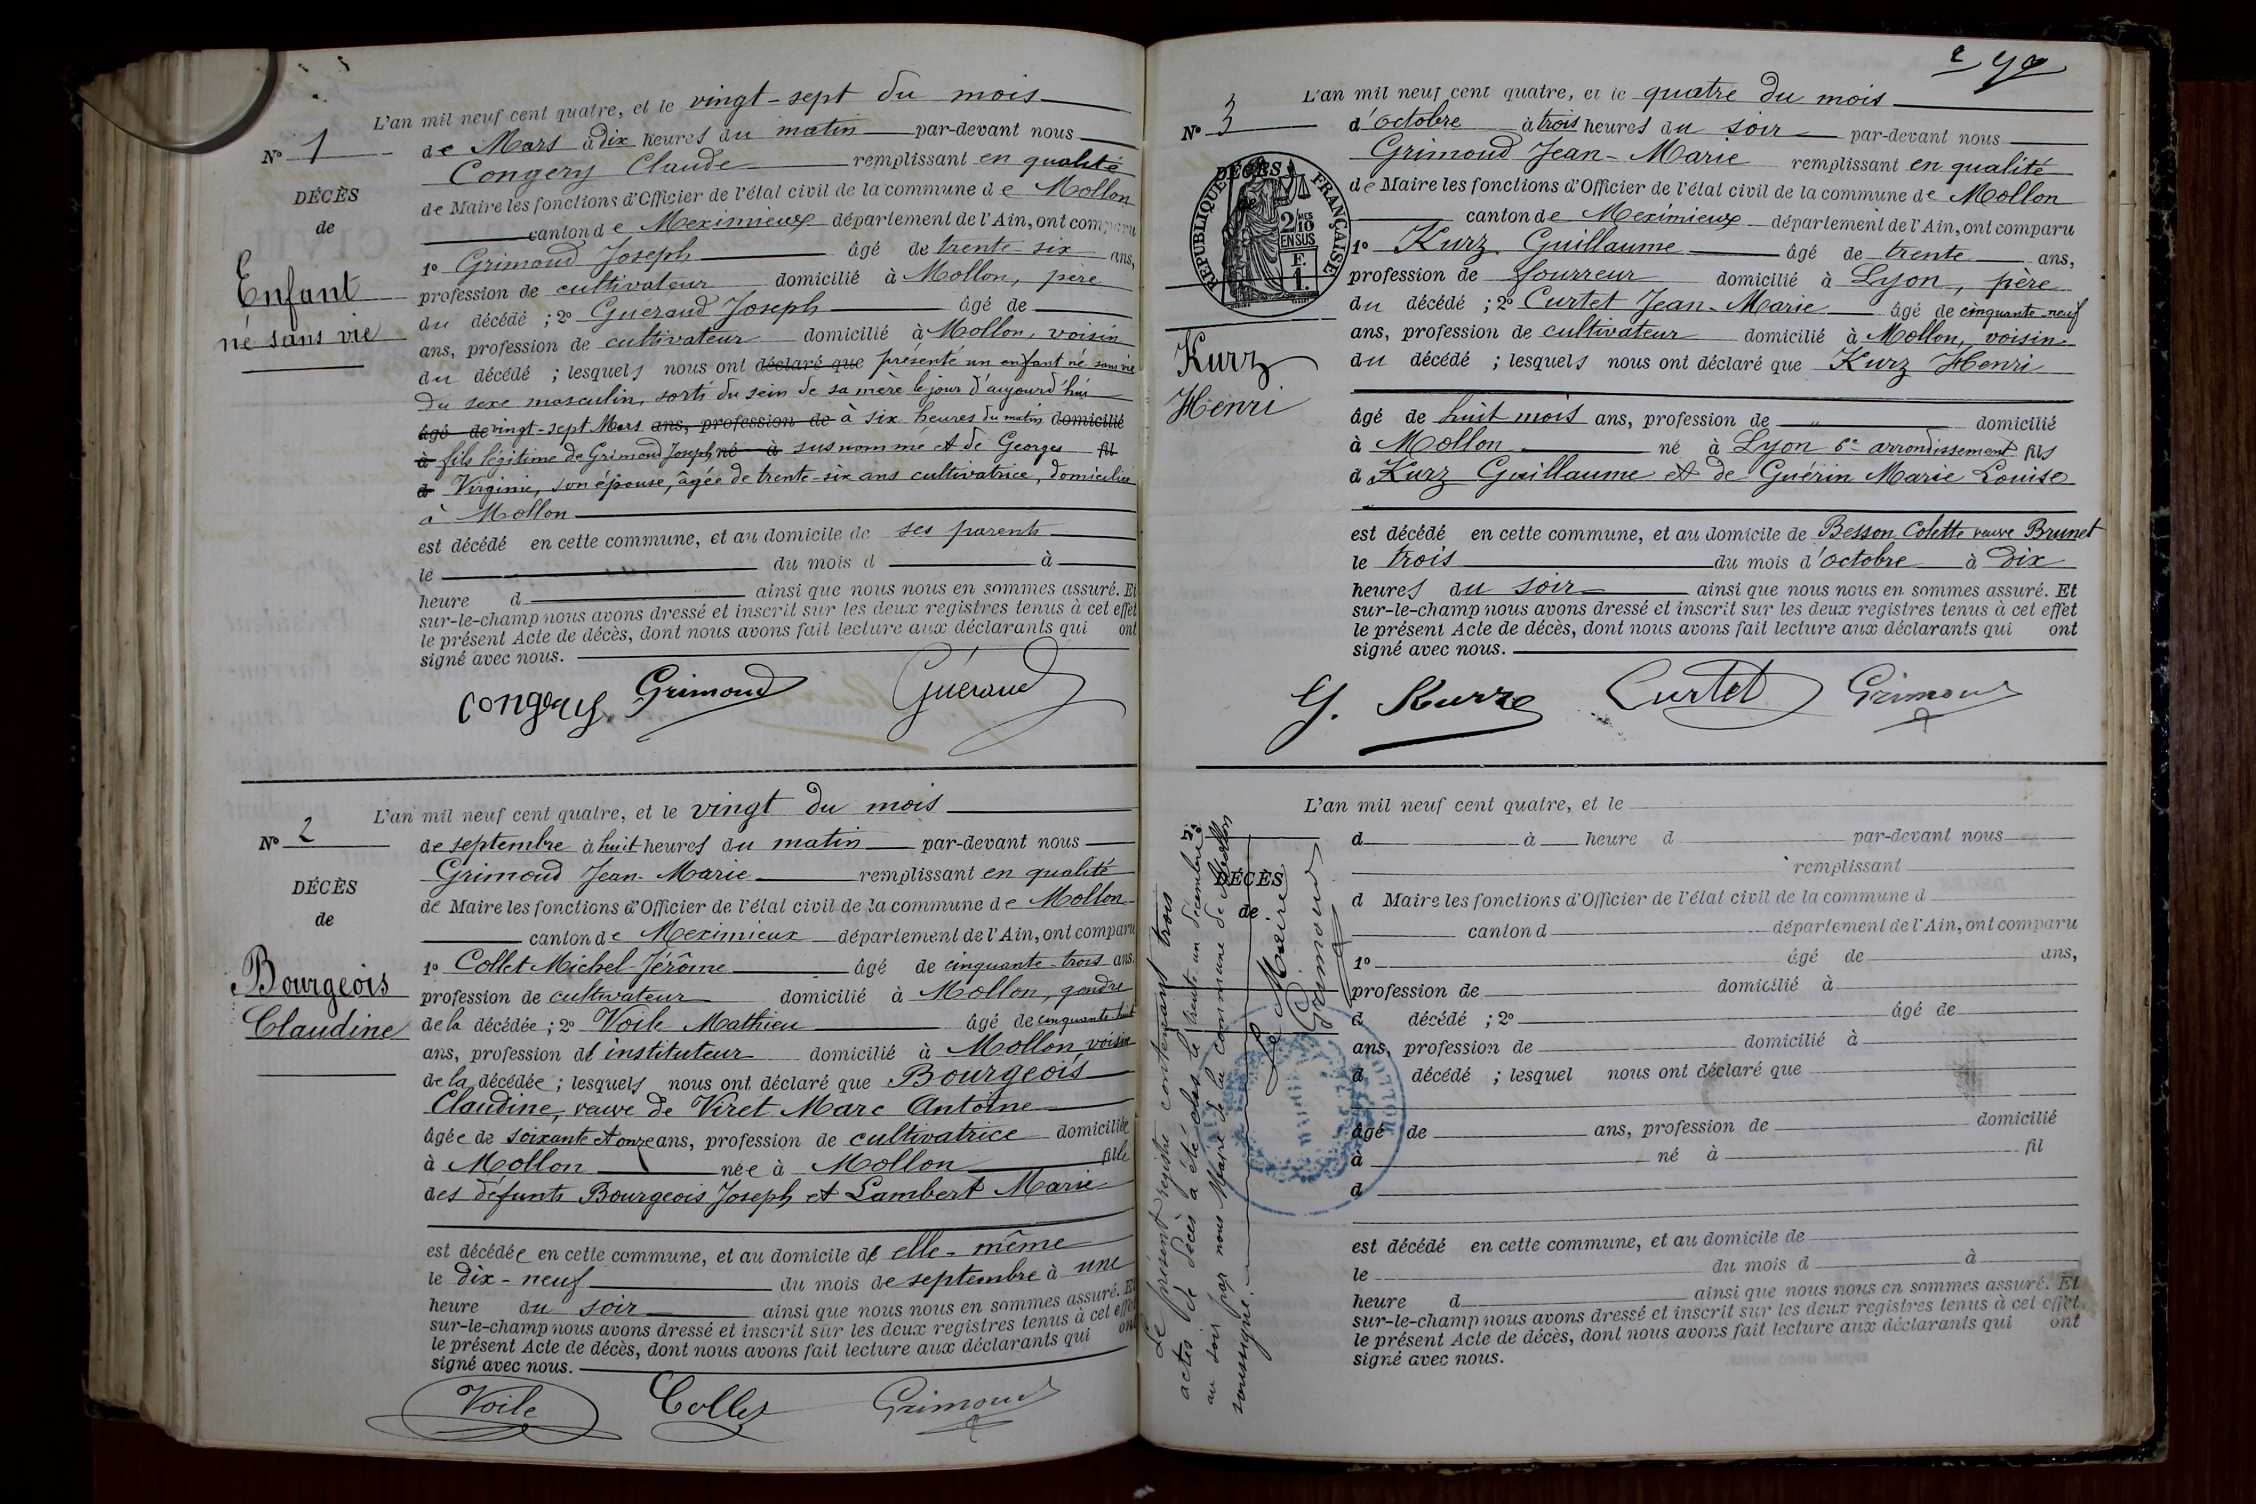 L'an mil neuf cent quatre, et le vingt-sept du mois
N° 1
de Mars à dix heures du matin par-devant nous
Congery Claude remplissant en qualité
DÉCÈS
de Maire les fonctions d'Officier de l'état civil de la commune de Mollon
de
canton de Meximieux département de l'Ain, ont comparu
1° Grimond Joseph âgé de trente-six ans,
Enfant
profession de cultivateur domicilié à Mollon, père
né sans vie
du décédé ; 2° Guéraud Joseph âgé de
ans, profession de cultivateur domicilié à Mollon, voisin
du décédé ; lesquels nous ont déclaré que présenté un enfant né sans vie
du sexe masculin, sorti du sein de sa mère le jour d'aujourd'hui
âgé de vingt-sept Mars ans, profession de à six heures du matin domicilié
à fils légitime de Grimond Joseph né à susnommé et de Georges fil
d Virginie, son épouse, âgée de trente-six ans cultivatrice, domiciliée
à Mollon
est décédé en cette commune, et au domicile de ses parents
le du mois d à
heure d ainsi que nous nous en sommes assuré. Et
sur-le-champ nous avons dressé et inscrit sur les deux registres tenus à cet effet
le présent Acte de décès, dont nous avons fait lecture aux déclarants qui ont
signé avec nous.
Congery Grimond Guéraud
L'an mil neuf cent quatre, et le vingt du mois
N° 2
de septembre à huit heures du matin par-devant nous
Grimond Jean-Marie remplissant en qualité
DÉCÈS
de Maire les fonctions d'Officier de l'état civil de la commune de Mollon
de
canton de Meximieux département de l'Ain, ont comparu
1° Collet Michel Jérôme âgé de cinquante-trois ans.
Bourgeois
profession de cultivateur domicilié à Mollon, gendre
Claudine
de la décédée ; 2° Voile Mathieu âgé de cinquante-huit
ans, profession de instituteur domicilié à Mollon voisin
de la décédée ; lesquels nous ont déclaré que Bourgeois
Claudine, veuve de Viret Marc Antoine
âgée de soixante et onze ans, profession de cultivatrice domiciliée
à Mollon née à Mollon fille
des défunts Bourgeois Joseph et Lambert Marie
est décédée en cette commune, et au domicile de elle-même
le dix-neuf du mois de septembre à une
heure du soir ainsi que nous nous en sommes assuré. Et
sur-le-champ nous avons dressé et inscrit sur les deux registres tenus à cet effet
le présent Acte de décès, dont nous avons fait lecture aux déclarants qui ont
signé avec nous.
Voile Collet Grimond
L'an mil neuf cent quatre, et le quatre du mois
N° 3
d'octobre à trois heures du soir par-devant nous
Grimond Jean-Marie remplissant en qualité
DÉCÈS
de
RÉPUBLIQUE FRANÇAISE
2/10 EN SUS
F. 1.
de Maire les fonctions d'Officier de l'état civil de la commune de Mollon
canton de Meximieux département de l'Ain, ont comparu
1° Kurz Guillaume âgé de trente ans,
profession de fourreur domicilié à Lyon, père
du décédé ; 2° Curtet Jean-Marie âgé de cinquante-neuf
ans, profession de cultivateur domicilié à Mollon, voisin
Kurz
du décédé ; lesquels nous ont déclaré que Kurz Henri
Henri
âgé de huit mois ans, profession de " domicilié
à Mollon né à Lyon 6e arrondissement fils
d Kurz Guillaume et de Guérin Marie Louise
est décédé en cette commune, et au domicile de Besson Colette veuve Brunet
le trois du mois d'octobre à dix
heures du soir ainsi que nous nous en sommes assuré. Et
sur-le-champ nous avons dressé et inscrit sur les deux registres tenus à cet effet
le présent Acte de décès, dont nous avons fait lecture aux déclarants qui ont
signé avec nous.
G. Kurz Curtet Grimond
L'an mil neuf cent quatre, et le
d à heure d par-devant nous
remplissant
DÉCÈS
d Maire les fonctions d'Officier de l'état civil de la commune d
de
canton d département de l'Ain, ont comparu
1° âgé de ans,
profession de domicilié à
d décédé ; 2° âgé de
ans, profession de domicilié à
d décédé ; lesquel nous ont déclaré que
âgé de ans, profession de domicilié
à né à fil
d
est décédé en cette commune, et au domicile de
le du mois d à
heure d ainsi que nous nous en sommes assuré. Et
sur-le-champ nous avons dressé et inscrit sur les deux registres tenus à cet effet
le présent Acte de décès, dont nous avons fait lecture aux déclarants qui ont
signé avec nous.
Le présent registre contenant trois
actes de décès a été clos le trente un décembre
au soir par nous Maire de la commune de Mollon
soussigné.
Le Maire
Grimond
MOLLON